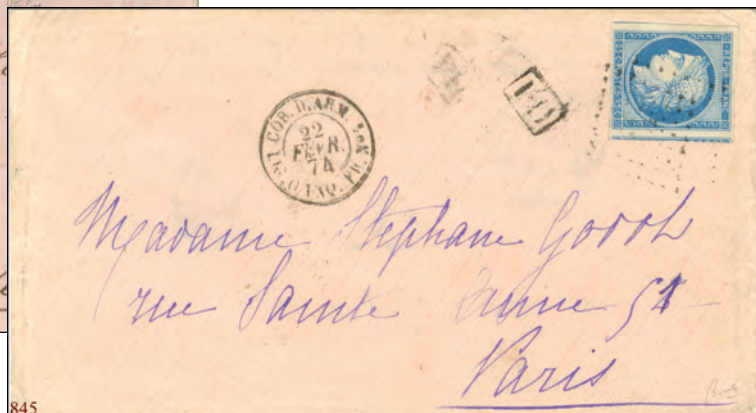 COR. D. ARM.
22
FÉVR.
74
PD
Madame Stephane Godot
rue Sainte Anne 51
Paris
845